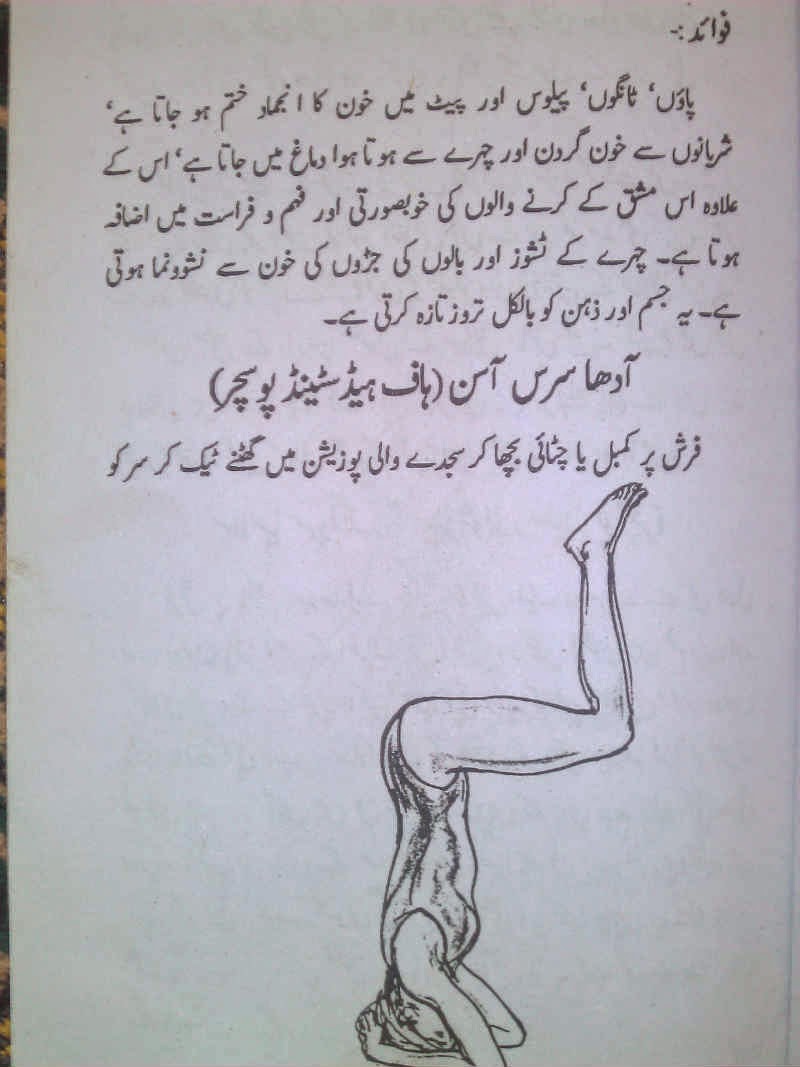 فوائد :-
پاؤں‘ ٹانگوں‘ پیلوس اور پیٹ میں خون کا انجماد ختم ہو جاتا ہے‘
شریانوں سے خون گردن اور چہرے سے ہوتا ہوا دماغ میں جاتا ہے‘ اس کے
علاوہ اس مشق کے کرنے والوں کی خوبصورتی اور فہم و فراست میں اضافہ
ہوتا ہے۔ چہرے کے ٹشوز اور بالوں کی جڑوں کی خون سے نشوونما ہوتی
ہے۔ یہ جسم اور ذہن کو بالکل تروز تازہ کرتی ہے۔
آدھا سرس آسن (ہاف ہیڈ سٹینڈ پوسچر)
فرش پر کمبل یا چٹائی بچھا کر سجدے والی پوزیشن میں گھٹنے ٹیک کر سر کو